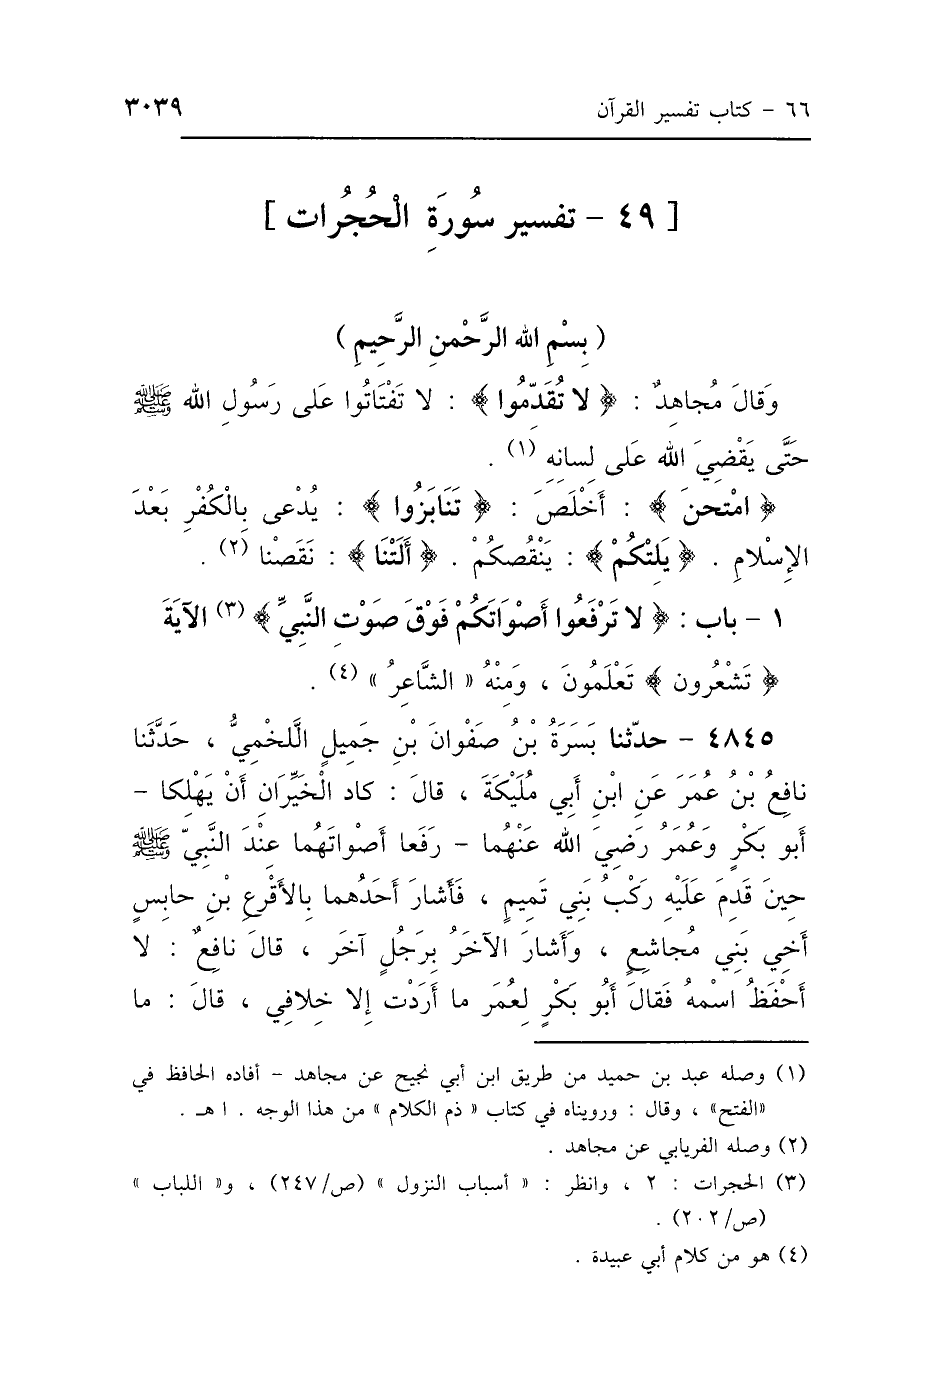 ٦٦ - كتاب تفسير القرآن ٣٠٣٩
[ ٤٩ - تفسير سُورَةِ الْحُجُرات ]
( بِسْمِ الله الرَّحْمنِ الرَّحِيمِ )
وَقالَ مُجاهِدٌ : ﴿ لا تُقَدّمُوا ﴾ : لا تَفْتَاتُوا عَلى رَسُولِ الله ﷺ
حَتَّى يَقْضِيَ الله عَلى لِسانِهِ (١) .
﴿ امْتحنَ ﴾ : أَخْلَصَ : ﴿ تَنَابَزُوا ﴾ : يُدْعى بِالْكُفْرِ بَعْدَ
الإِسْلامِ . ﴿ يَلتكُمْ ﴾ : يَنْقُصكُمْ . ﴿ أَلَتْنَا ﴾ : نَقَصْنا (٢) .
١ - باب : ﴿ لا تَرْفَعُوا أَصْوَاتَكُمْ فَوْقَ صَوْتِ النَّبِيِّ ﴾ (٣) الآيَةَ
﴿ تَشْعُرون ﴾ تَعْلَمُونَ ، وَمِنْهُ « الشَّاعِرُ » (٤) .
٤٨٤٥ - حدّثنا بَسَرَةُ بْنُ صَفْوانَ بْنِ جَمِيلٍ الَّلخْمِيُّ ، حَدَّثَنا
نافِعُ بْنُ عُمَرَ عَنِ ابْنِ أَبي مُلَيْكَةَ ، قالَ : كاد الْخَيِّرَانِ أَنْ يَهْلِكا -
أَبو بَكْرٍ وَعُمَرُ رَضِيَ الله عَنْهُما - رَفَعا أَصْواتَهُما عِنْدَ النَّبِيّ ﷺ
حِينَ قَدِمَ عَلَيْهِ رَكْبُ بَنِي تَمِيمٍ ، فَأَشارَ أَحَدُهما بِالأَقْرعِ بْنِ حابِسٍ
أَخِي بَنِي مُجاشِعٍ ، وَأَشارَ الآخَرُ بِرَجُلٍ آخَر ، قالَ نافِعٌ : لا
أَحْفَظُ اسْمهُ فَقالَ أَبُو بَكْرٍ لِعُمَر ما أَرَدْت إِلا خِلافِي ، قالَ : ما
(١) وصله عبد بن حميد من طريق ابن أبي نجيح عن مجاهد - أفاده الحافظ في
«الفتح» ، وقال : ورويناه في كتاب « ذم الكلام » من هذا الوجه . ا هـ .
(٢) وصله الفريابي عن مجاهد .
(٣) الحجرات : ٢ ، وانظر : « أسباب النزول » (ص/٢٤٧) ، و« اللباب »
(ص/٢٠٢) .
(٤) هو من كلام أبي عبيدة .